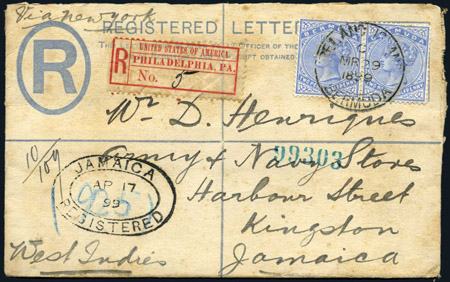 Via New York
REGISTERED LETTER
OFFICER OF THE
R
UNITED STATES OF AMERICA.
PHILADELPHIA, PA.
No. 5
BERMUDA
MR 29
1899
BERMUDA
Mr D. Henriques
10/109
Army & Navy Stores
99303
JAMAICA
AP 17
99
REGISTERED
Harbour Street
Kingston
West Indies
Jamaica